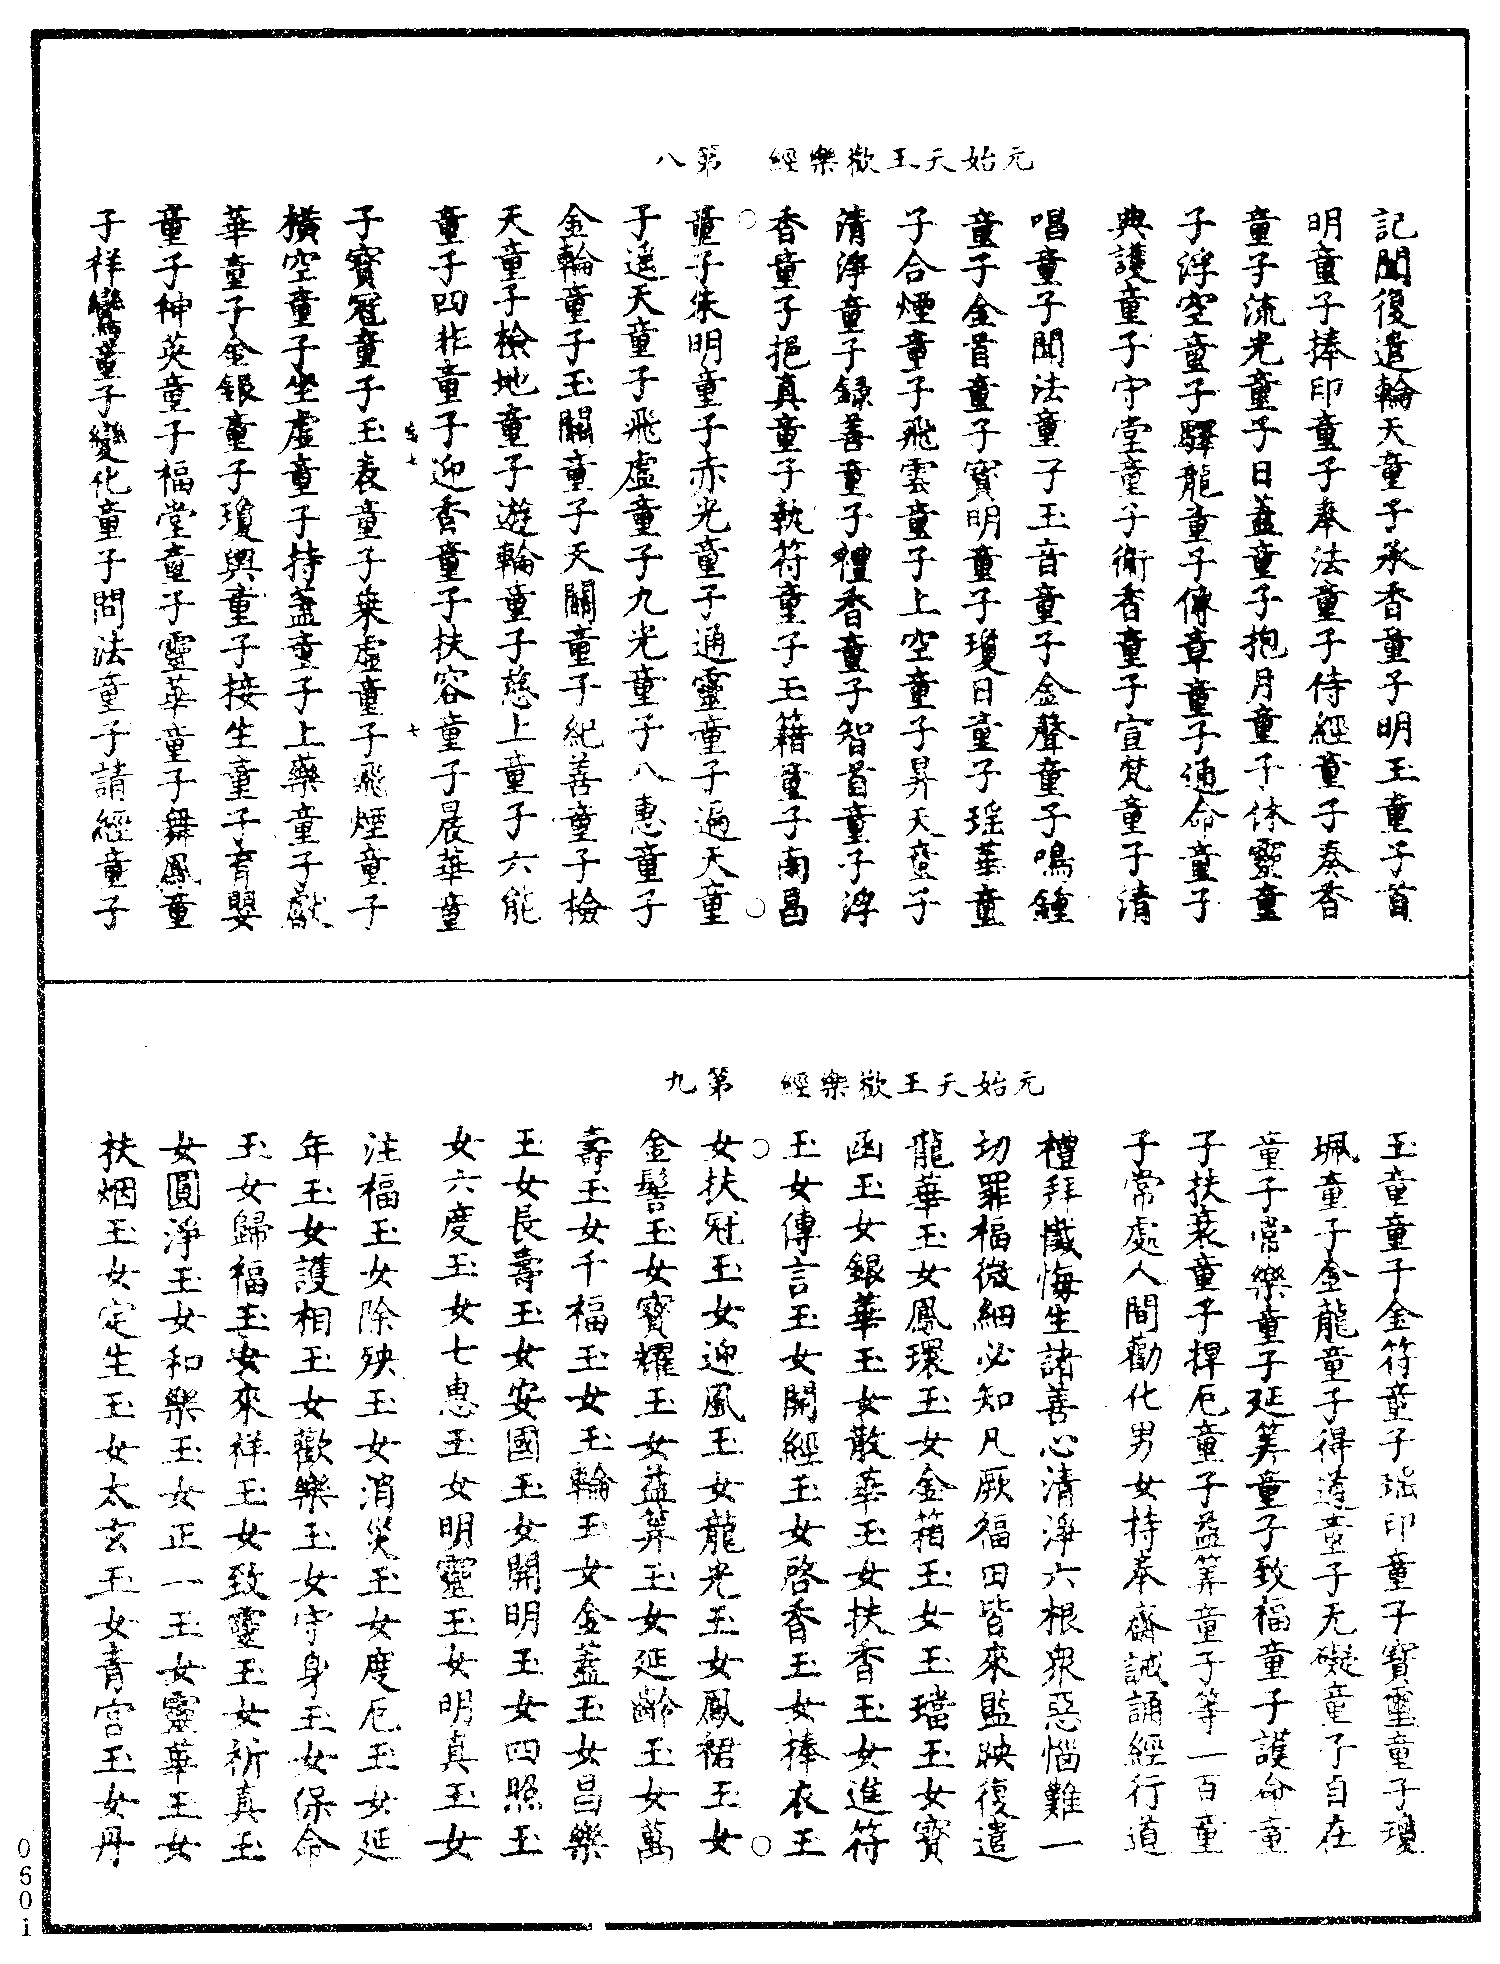 元始天王歡樂經　第八
記聞復遣輪天童子承香童子明王童子首
明童子捧印童子奉法童子侍經童子奏香
童子流光童子日蓋童子抱月童子休靈童
子浮空童子驛龍童子傳章童子通命童子
典護童子守堂童子衛香童子宣梵童子清
唱童子聞法童子玉音童子金聲童子鳴鍾
童子金首童子寶明童子瓊日童子瑶華童
子合煙童子飛雲童子上空童子昇天童子
清淨童子錄善童子禮香童子智首童子浮
香童子挹真童子執符童子玉籍童子南昌
童子朱明童子赤光童子通靈童子遍天童
子遥天童子飛虛童子九光童子八惠童子
金輪童子玉關童子天關童子紀善童子檢
天童子檢地童子遊輪童子慈上童子六能
童子四非童子迎香童子扶容童子晨華童
子寶冠童子玉表童子乘虛童子飛煙童子
橫空童子坐虛童子持蓋童子上藥童子獻
華童子金銀童子瓊輿童子接生童子育嬰
童子神英童子福堂童子靈華童子舞鳳童
子祥鸞童子變化童子問法童子請經童子
元始天王歡樂經　第九
玉童童子金符童子瑶印童子寶璽童子瓊
珮童子金龍童子得道童子无礙童子自在
童子常樂童子延筭童子致福童子護命童
子扶衰童子捍厄童子益筭童子等一百童
子常處人間勸化男女持奉齋誡誦經行道
禮拜懺悔生諸善心清淨六根眾惡惱難一
切罪福微細必知凡厥福田皆來監映復遣
龍華玉女鳳環玉女金箱玉女玉璫玉女寶
函玉女銀華玉女散華玉女扶香玉女進符
玉女傳言玉女開經玉女啓香玉女捧衣玉
女扶冠玉女迎風玉女龍光玉女鳳裙玉女
金髻玉女寶耀玉女益筭玉女延齡玉女萬
壽玉女千福玉女玉輪玉女金蓋玉女昌樂
玉女長壽玉女安國玉女開明玉女四照玉
女六度玉女七惠玉女明靈玉女明真玉女
注福玉女除殃玉女消災玉女度厄玉女延
年玉女護相玉女歡樂玉女守身玉女保命
玉女歸福玉女來祥玉女致靈玉女祈真玉
女圓淨玉女和樂玉女正一玉女靈華玉女
扶烟玉女定生玉女太玄玉女青宮玉女丹
0601